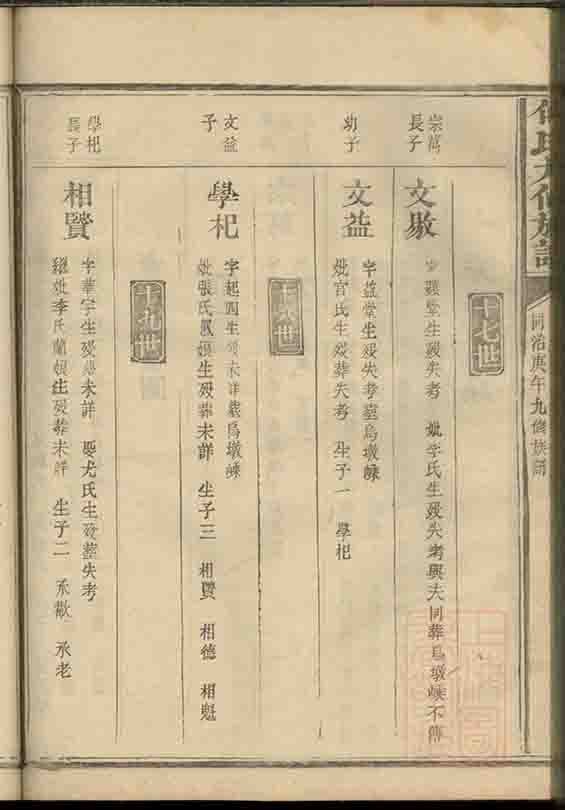 氏九修族譜
同治庚午九修族譜
十七世
崇萬
長子
文敭
聽堂生歿失考 妣李氏生歿失考與夫同葬烏墩崠不傳
幼子
文益
字益堂生歿失考葬烏墩崠
妣官氏生歿葬失考 生子一 學杞
十八世
文益
子
學杞
字起四生歿未詳葬烏墩崠
妣張氏鳳娘生歿葬未詳 生子三 相賢 相德 相魁
十九世
學杞
長子
相賢
字華宇生歿葬未詳 娶尤氏生歿葬失考
繼妣李氏蘭娘生歿葬未詳 生子二 承歡 承老